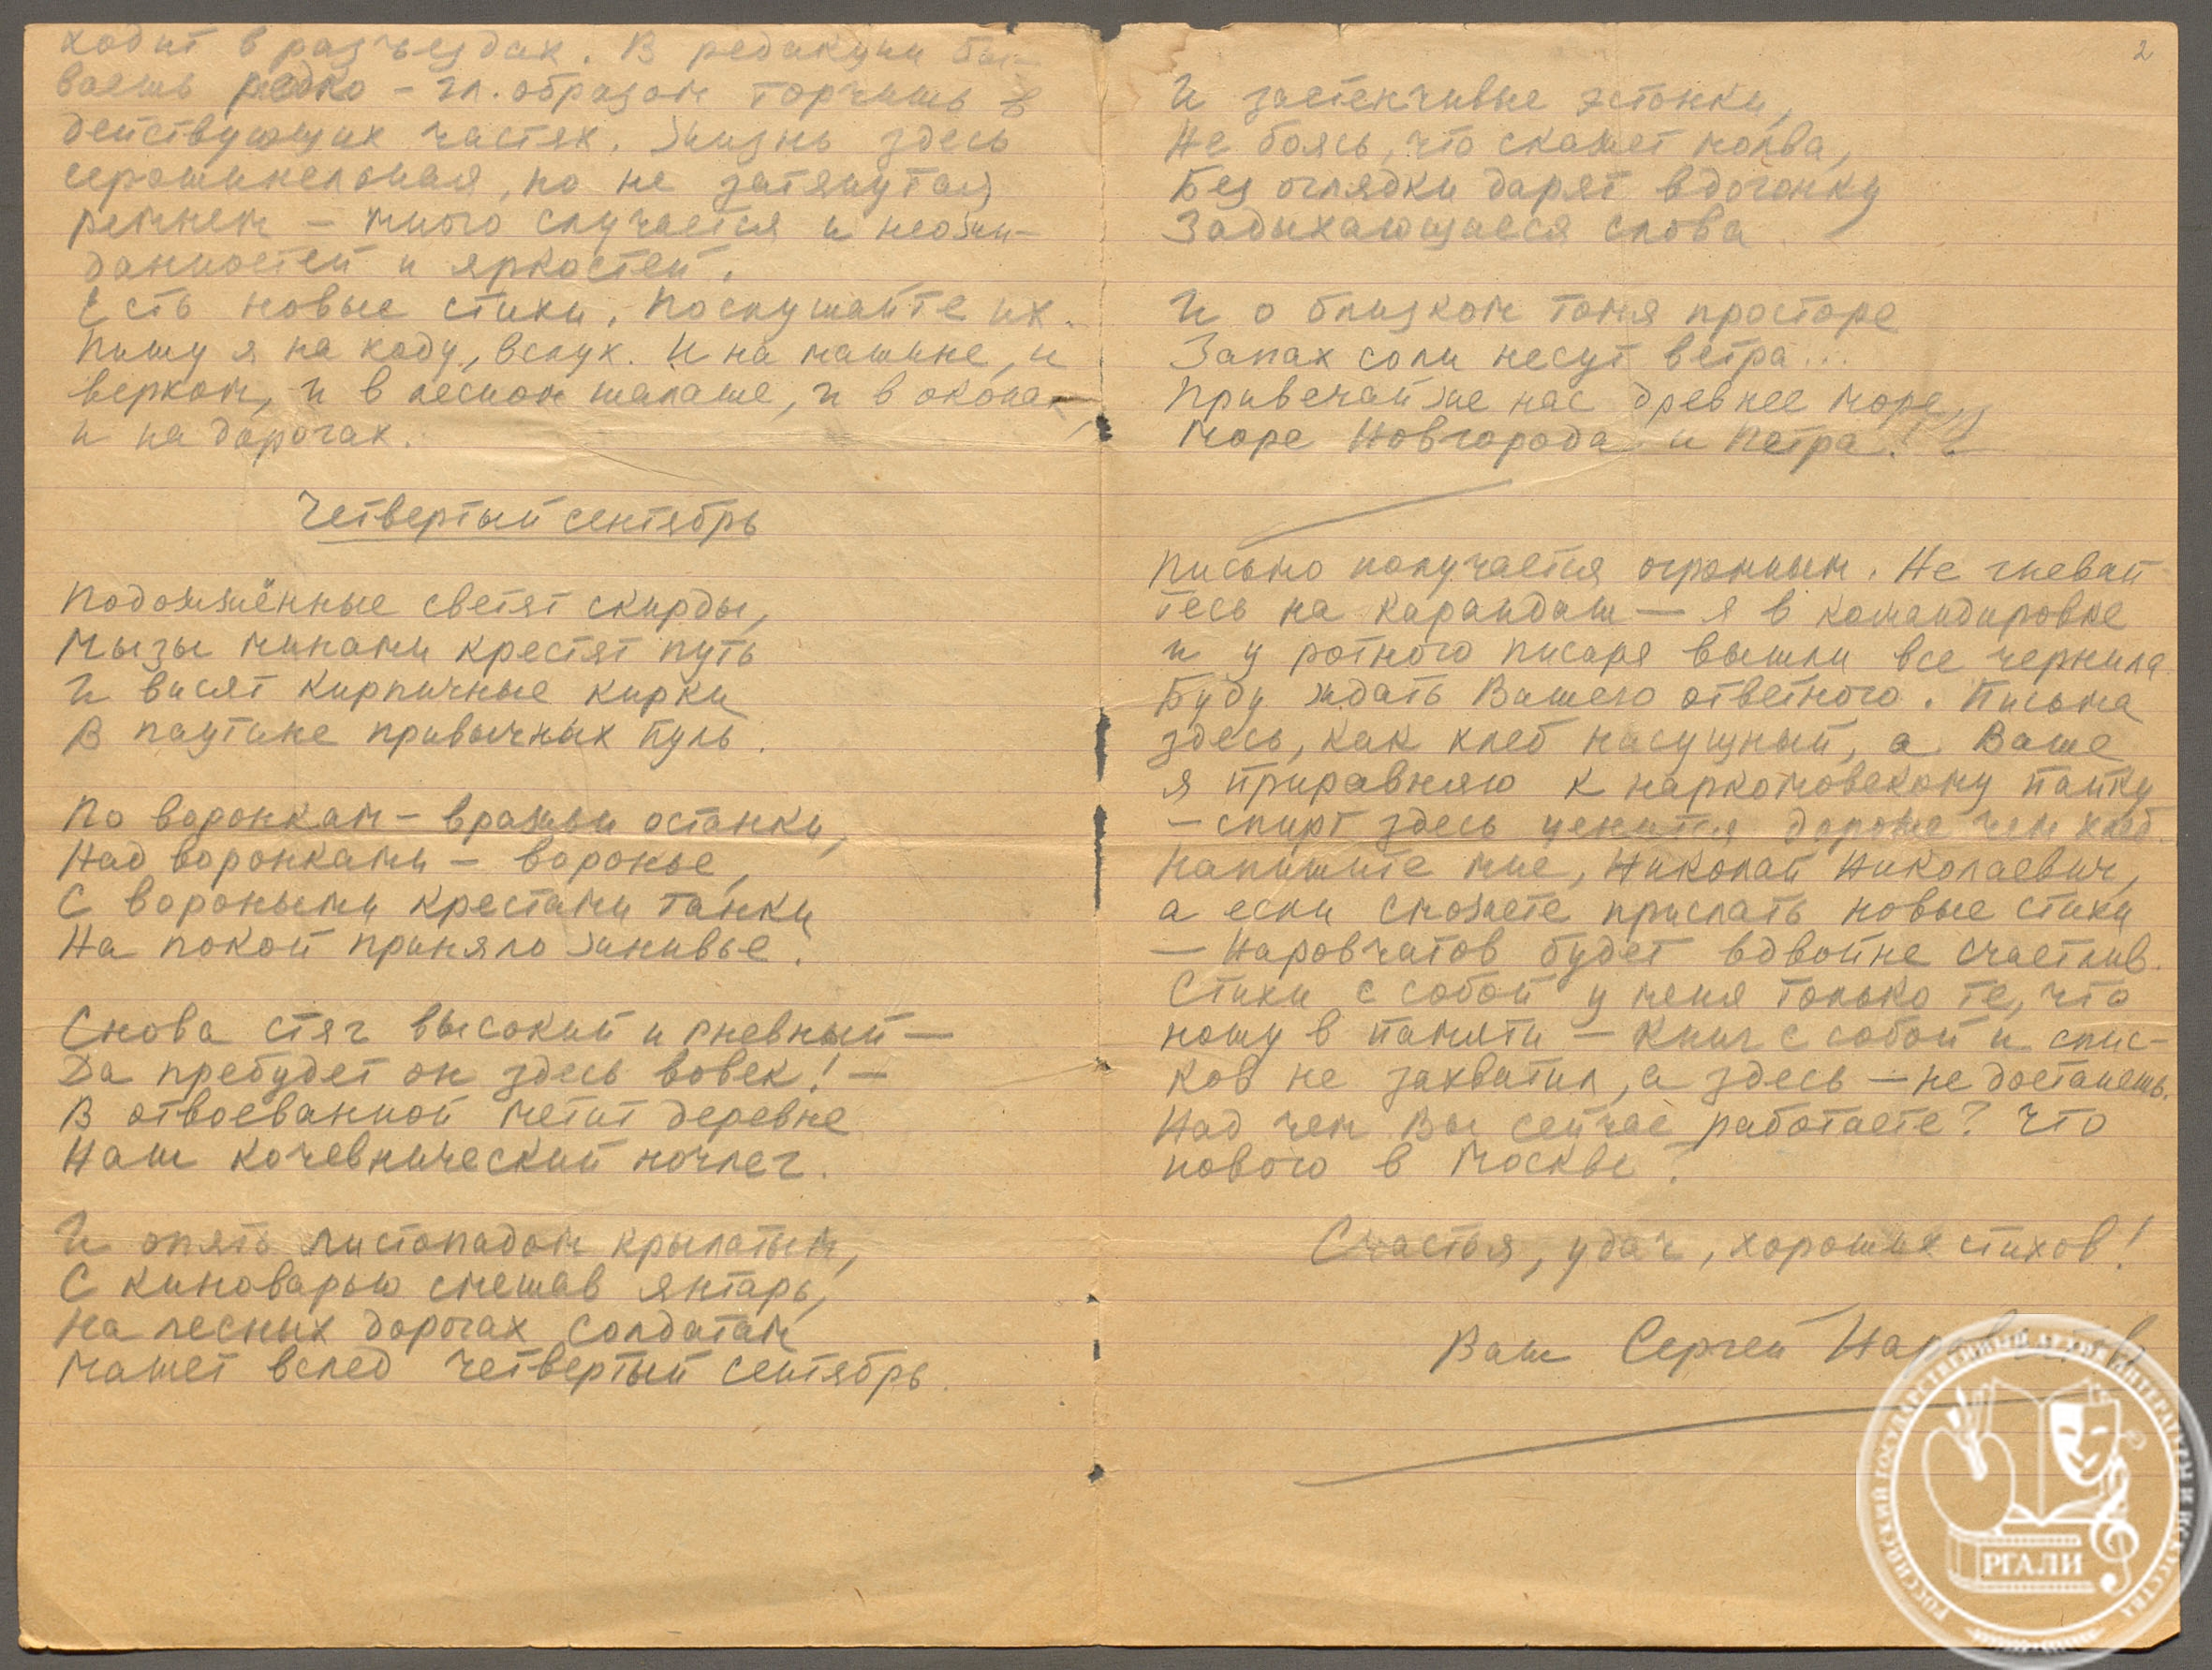 ходит в разъездах. В редакции бы-
ваешь редко – гл. образом торчишь в
действующих частях. Жизнь здесь
серошинельная, но не затянутая
ремнем – много случается и неожи-
данностей и яркостей.
Есть новые стихи. Послушайте их.
Пишу я на ходу, вслух. И на машине, и
верхом, и в лесном шалаше, и в окопах,
и на дорогах.
Четвертый сентябрь
Подожжённые светят скирды,
Мызы минами крестят путь
И висят кирпичные кирки
В паутине привычных пуль.
По воронкам – вражьи останки,
Над воронками – воронье,
С вороными крестами танки
На покой приняло жнивье.
Снова стяг высокий и гневный –
Да пребудет он здесь вовек! –
В отвоеванной метит деревне
Наш кочевнический ночлег.
И опять листопадом крылатым,
С киноварью смешав янтарь,
На лесных дорогах солдатам
Машет вслед четвертый сентябрь.
2
И застенчивые эстонки,
Не боясь, что скажет молва,
Без оглядки дарят вдогонку
Задыхающиеся слова
И о близком томя просторе
Запах соли несут ветра...
Привечай же нас древнее море,
Море Новгорода и Петра!
Письмо получается огромным. Не гневай
тесь на карандаш – я в командировке
и у ротного писаря вышли все чернила
Буду ждать Вашего ответного. Письма
здесь, как хлеб насущный, а Ваше
я приравняю к наркомовскому пайку
– спирт здесь ценится дороже чем хлеб.
Напишите мне, Николай Николаевич,
а если сможете прислать новые стихи
– Наровчатов будет вдвойне счастлив.
Стихи с собой у меня только те, что
ношу в памяти – книг с собой и спис-
ков не захватил, а здесь – не достанешь.
Над чем Вы сейчас работаете? Что
нового в Москве?
Счастья, удач, хороших стихов!
Ваш Сергей Наровчатов
РОССИЙСКИЙ ГОСУДАРСТВЕННЫЙ АРХИВ ЛИТЕРАТУРЫ И ИСКУССТВА
РГАЛИ